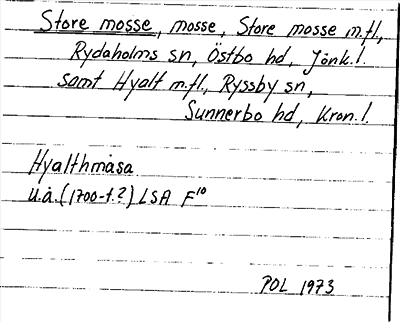 Store mosse, mosse, Store mosse m.fl.,
Rydaholms sn, Östbo hd, Jönk.l.
samt Hyalt m.fl., Ryssby sn,
Sunnerbo hd, Kron.l.
Hyalthmåsa
u.å. (1700-t.?) LSA F¹⁰
POL 1973